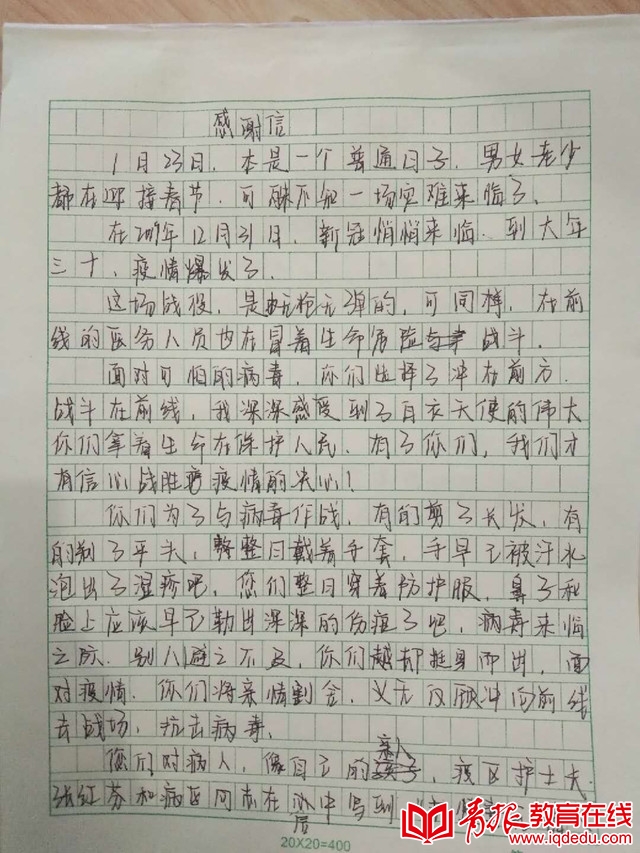 感谢信
1月23日，本是一个普通日子，男女老少
都在迎接春节，可殊不知一场灾难来临了，
在2019年12月31日，新冠悄悄来临，到大年
三十，疫情爆发了，
这场战役，是无枪无弹的，可同样，在前
线的医务人员也在冒着生命危险战斗，
面对可怕的病毒，你们选择了冲在前方，
战斗在前线，我深深感受到了白衣天使的伟大
你们拿着生命在保护人民，有了你们，我们才
有信心战胜疫情的决心！
你们为了与病毒作战，有的剪了长发，有
的剃了平头，整日戴着手套，手早已被汗水
泡出了湿疹吧，您们整日穿着防护服，鼻子和
脸上应该早已勒出深深的伤痕了吧，病毒来临
之际，别人避之不及，你们却挺身而出，面
对疫情，你们将亲情割舍，义无反顾冲向前线
去战场，抗击病毒，
您们对病人，像自己的亲人，疫区护士夫
张红芬和病区同志在 中写到
20X20=400
青报教育在线
www.iqdedu.com